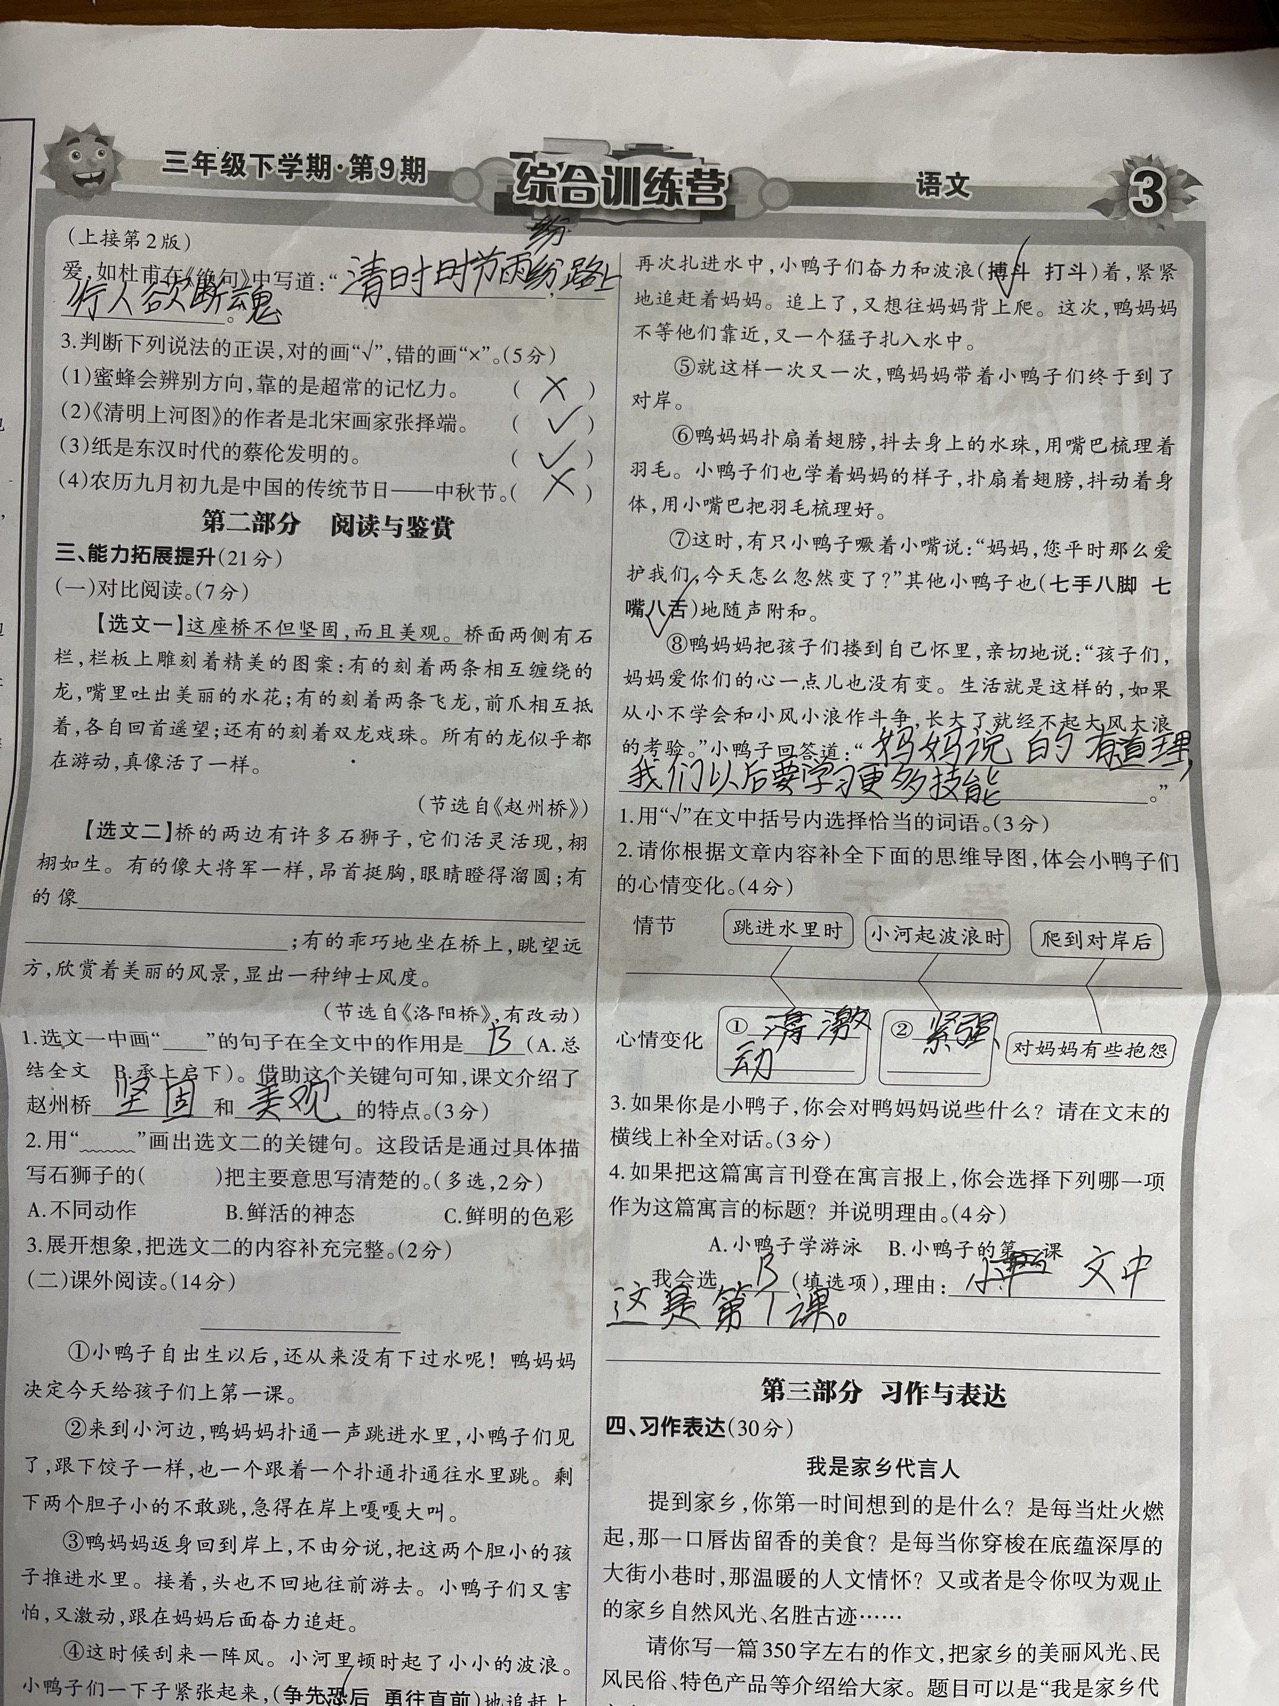 三年级下学期·第9期
综合训练营
语文
3
(上接第2版)
爱,如杜甫在《绝句》中写道:“清明时节雨纷纷,路上
行人欲断魂。
3.判断下列说法的正误,对的画“√”,错的画“×”。(5分)
(1)蜜蜂会辨别方向,靠的是超常的记忆力。 (×)
(2)《清明上河图》的作者是北宋画家张择端。 (√)
(3)纸是东汉时代的蔡伦发明的。 (√)
(4)农历九月初九是中国的传统节日——中秋节。(×)
第二部分 阅读与鉴赏
三、能力拓展提升(21分)
(一)对比阅读。(7分)
【选文一】这座桥不但坚固,而且美观。桥面两侧有石
栏,栏板上雕刻着精美的图案:有的刻着两条相互缠绕的
龙,嘴里吐出美丽的水花;有的刻着两条飞龙,前爪相互抵
着,各自回首遥望;还有的刻着双龙戏珠。所有的龙似乎都
在游动,真像活了一样。
(节选自《赵州桥》)
【选文二】桥的两边有许多石狮子,它们活灵活现,栩
栩如生。有的像大将军一样,昂首挺胸,眼睛瞪得溜圆;有
的像
;有的乖巧地坐在桥上,眺望远
方,欣赏着美丽的风景,显出一种绅士风度。
(节选自《洛阳桥》,有改动)
1.选文一中画“____”的句子在全文中的作用是 B (A.总
结全文 B.承上启下)。借助这个关键句可知,课文介绍了
赵州桥 坚固 和 美观 的特点。(3分)
2.用“﹏﹏”画出选文二的关键句。这段话是通过具体描
写石狮子的( )把主要意思写清楚的。(多选,2分)
A.不同动作 B.鲜活的神态 C.鲜明的色彩
3.展开想象,把选文二的内容补充完整。(2分)
(二)课外阅读。(14分)
①小鸭子自出生以后,还从来没有下过水呢！鸭妈妈
决定今天给孩子们上第一课。
②来到小河边,鸭妈妈扑通一声跳进水里,小鸭子们见
了,跟下饺子一样,也一个跟着一个扑通扑通往水里跳。剩
下两个胆子小的不敢跳,急得在岸上嘎嘎大叫。
③鸭妈妈返身回到岸上,不由分说,把这两个胆小的孩
子推进水里。接着,头也不回地往前游去。小鸭子们又害
怕,又激动,跟在妈妈后面奋力追赶。
④这时候刮来一阵风。小河里顿时起了小小的波浪。
小鸭子们一下子紧张起来,(争先恐后 勇往直前)地追赶上
再次扎进水中,小鸭子们奋力和波浪(搏斗 打斗)着,紧紧
地追赶着妈妈。追上了,又想往妈妈背上爬。这次,鸭妈妈
不等他们靠近,又一个猛子扎入水中。
⑤就这样一次又一次,鸭妈妈带着小鸭子们终于到了
对岸。
⑥鸭妈妈扑扇着翅膀,抖去身上的水珠,用嘴巴梳理着
羽毛。小鸭子们也学着妈妈的样子,扑扇着翅膀,抖动着身
体,用小嘴巴把羽毛梳理好。
⑦这时,有只小鸭子噘着小嘴说:“妈妈,您平时那么爱
护我们,今天怎么忽然变了?”其他小鸭子也(七手八脚 七
嘴八舌)地随声附和。
⑧鸭妈妈把孩子们搂到自己怀里,亲切地说:“孩子们,
妈妈爱你们的心一点儿也没有变。生活就是这样的,如果
从小不学会和小风小浪作斗争,长大了就经不起大风大浪
的考验。”小鸭子回答道:“妈妈说的有道理,
我们以后要学习更多技能。”
1.用“√”在文中括号内选择恰当的词语。(3分)
2.请你根据文章内容补全下面的思维导图,体会小鸭子们
的心情变化。(4分)
情节 跳进水里时 小河起波浪时 爬到对岸后
心情变化 ① 激
动 ② 紧张 对妈妈有些抱怨
3.如果你是小鸭子,你会对鸭妈妈说些什么？请在文末的
横线上补全对话。(3分)
4.如果把这篇寓言刊登在寓言报上,你会选择下列哪一项
作为这篇寓言的标题？并说明理由。(4分)
A.小鸭子学游泳 B.小鸭子的第一课
我会选 B (填选项),理由: 文中
这是第1课。
第三部分 习作与表达
四、习作表达(30分)
我是家乡代言人
提到家乡,你第一时间想到的是什么？是每当灶火燃
起,那一口唇齿留香的美食？是每当你穿梭在底蕴深厚的
大街小巷时,那温暖的人文情怀？又或者是令你叹为观止
的家乡自然风光、名胜古迹……
请你写一篇350字左右的作文,把家乡的美丽风光、民
风民俗、特色产品等介绍给大家。题目可以是“我是家乡代